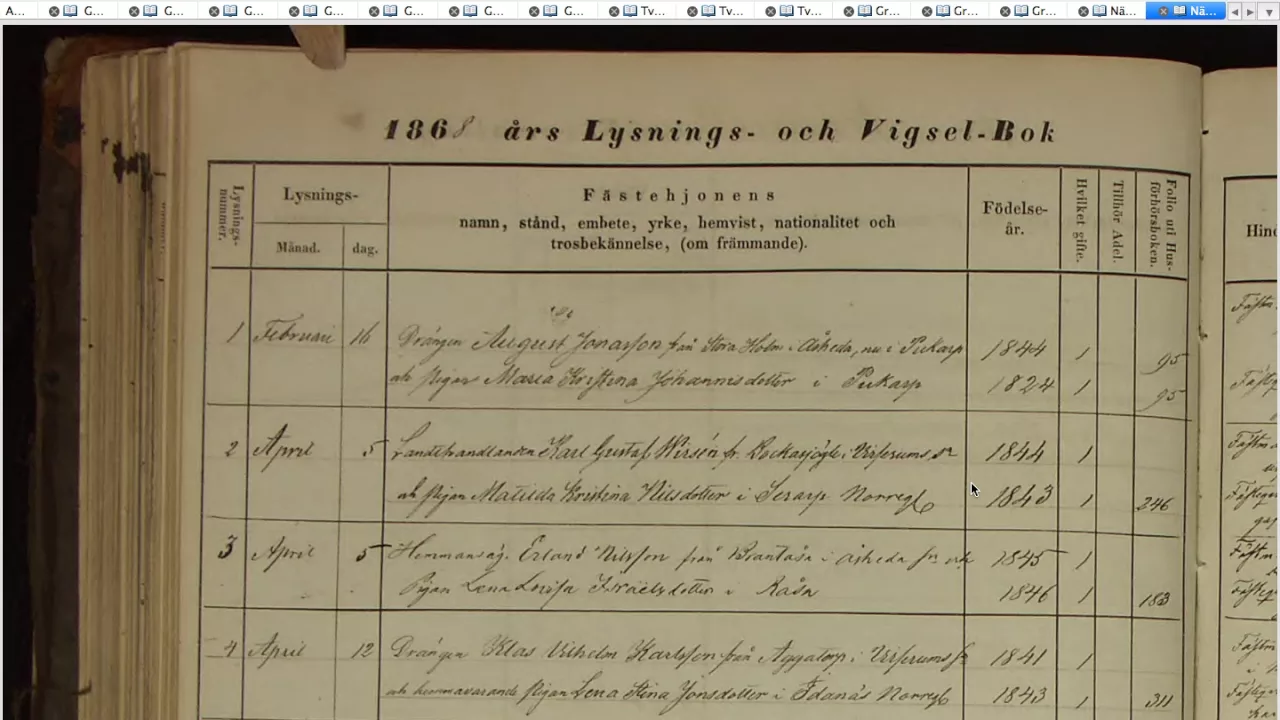 A... G... G... G... G... G... G... G... Tv... Tv... Tv... Gr... Gr... Gr... Nä... Nä...
1868 års Lysnings- och Vigsel-Bok
Lysnings-nummer.
Lysnings-
Månad. dag.
Fästehjonens
namn, stånd, embete, yrke, hemvist, nationalitet och
trosbekännelse, (om främmande).
Födelse-
år.
Hvilket gifte.
Tillhör Adel.
Folio uti Hus-
förhörsboken.
Hind
1 Februari 16 Drängen August Jonasson från Stora Holm i Åsheda, nu i Pukarp 1844 1 95
och Pigan Maria Kristina Johannisdotter i Pukarp 1824 1 95
2 April 5 Landthandlanden Karl Gustaf Wirsén fr. i Virserums sn 1844 1
och Pigan Matilda Kristina Nilsdotter i Norregb 1843 1 246
3 April 5 Hemmanseg. Erland Nilsson från i Åsheda sn och 1845 1
Pigan Lena Lovisa Israelsdotter i Råsa 1846 1 183
4 April 12 Drängen Klas Vilhelm Karlsson från Aggatorp i Virserums sn 1841 1
och hemmavarande Pigan Lena Stina Jonsdotter i Fdanäs Norregb 1843 1 311